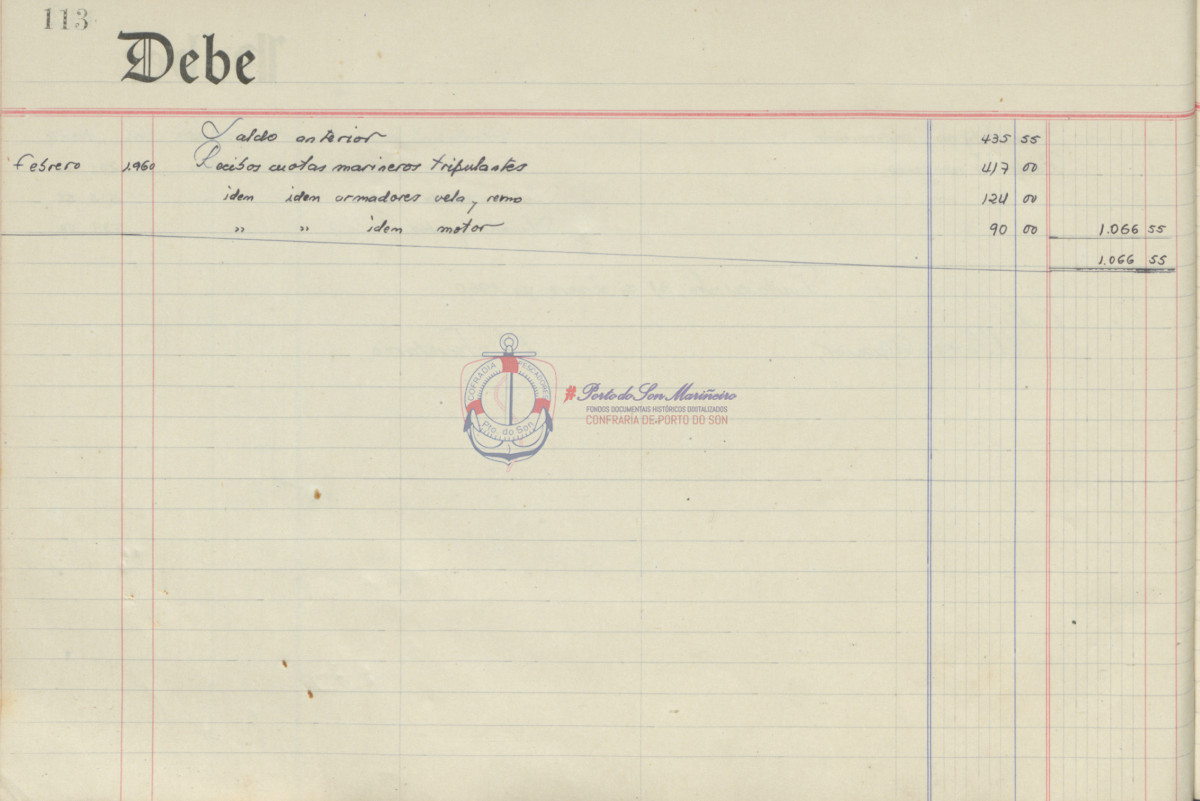 113
Debe
Saldo anterior 435 55
febrero 1.960 Recibos cuotas marineros tripulantes 417 00
idem idem armadores vela y remo 124 00
" " idem motor 90 00 1.066 55
1.066 55
COFRADIA PESCADORES
Pto. do Son
#Porto do Son Mariñeiro
FONDOS DOCUMENTAIS HISTÓRICOS DIXITALIZADOS
CONFRARÍA DE PORTO DO SON